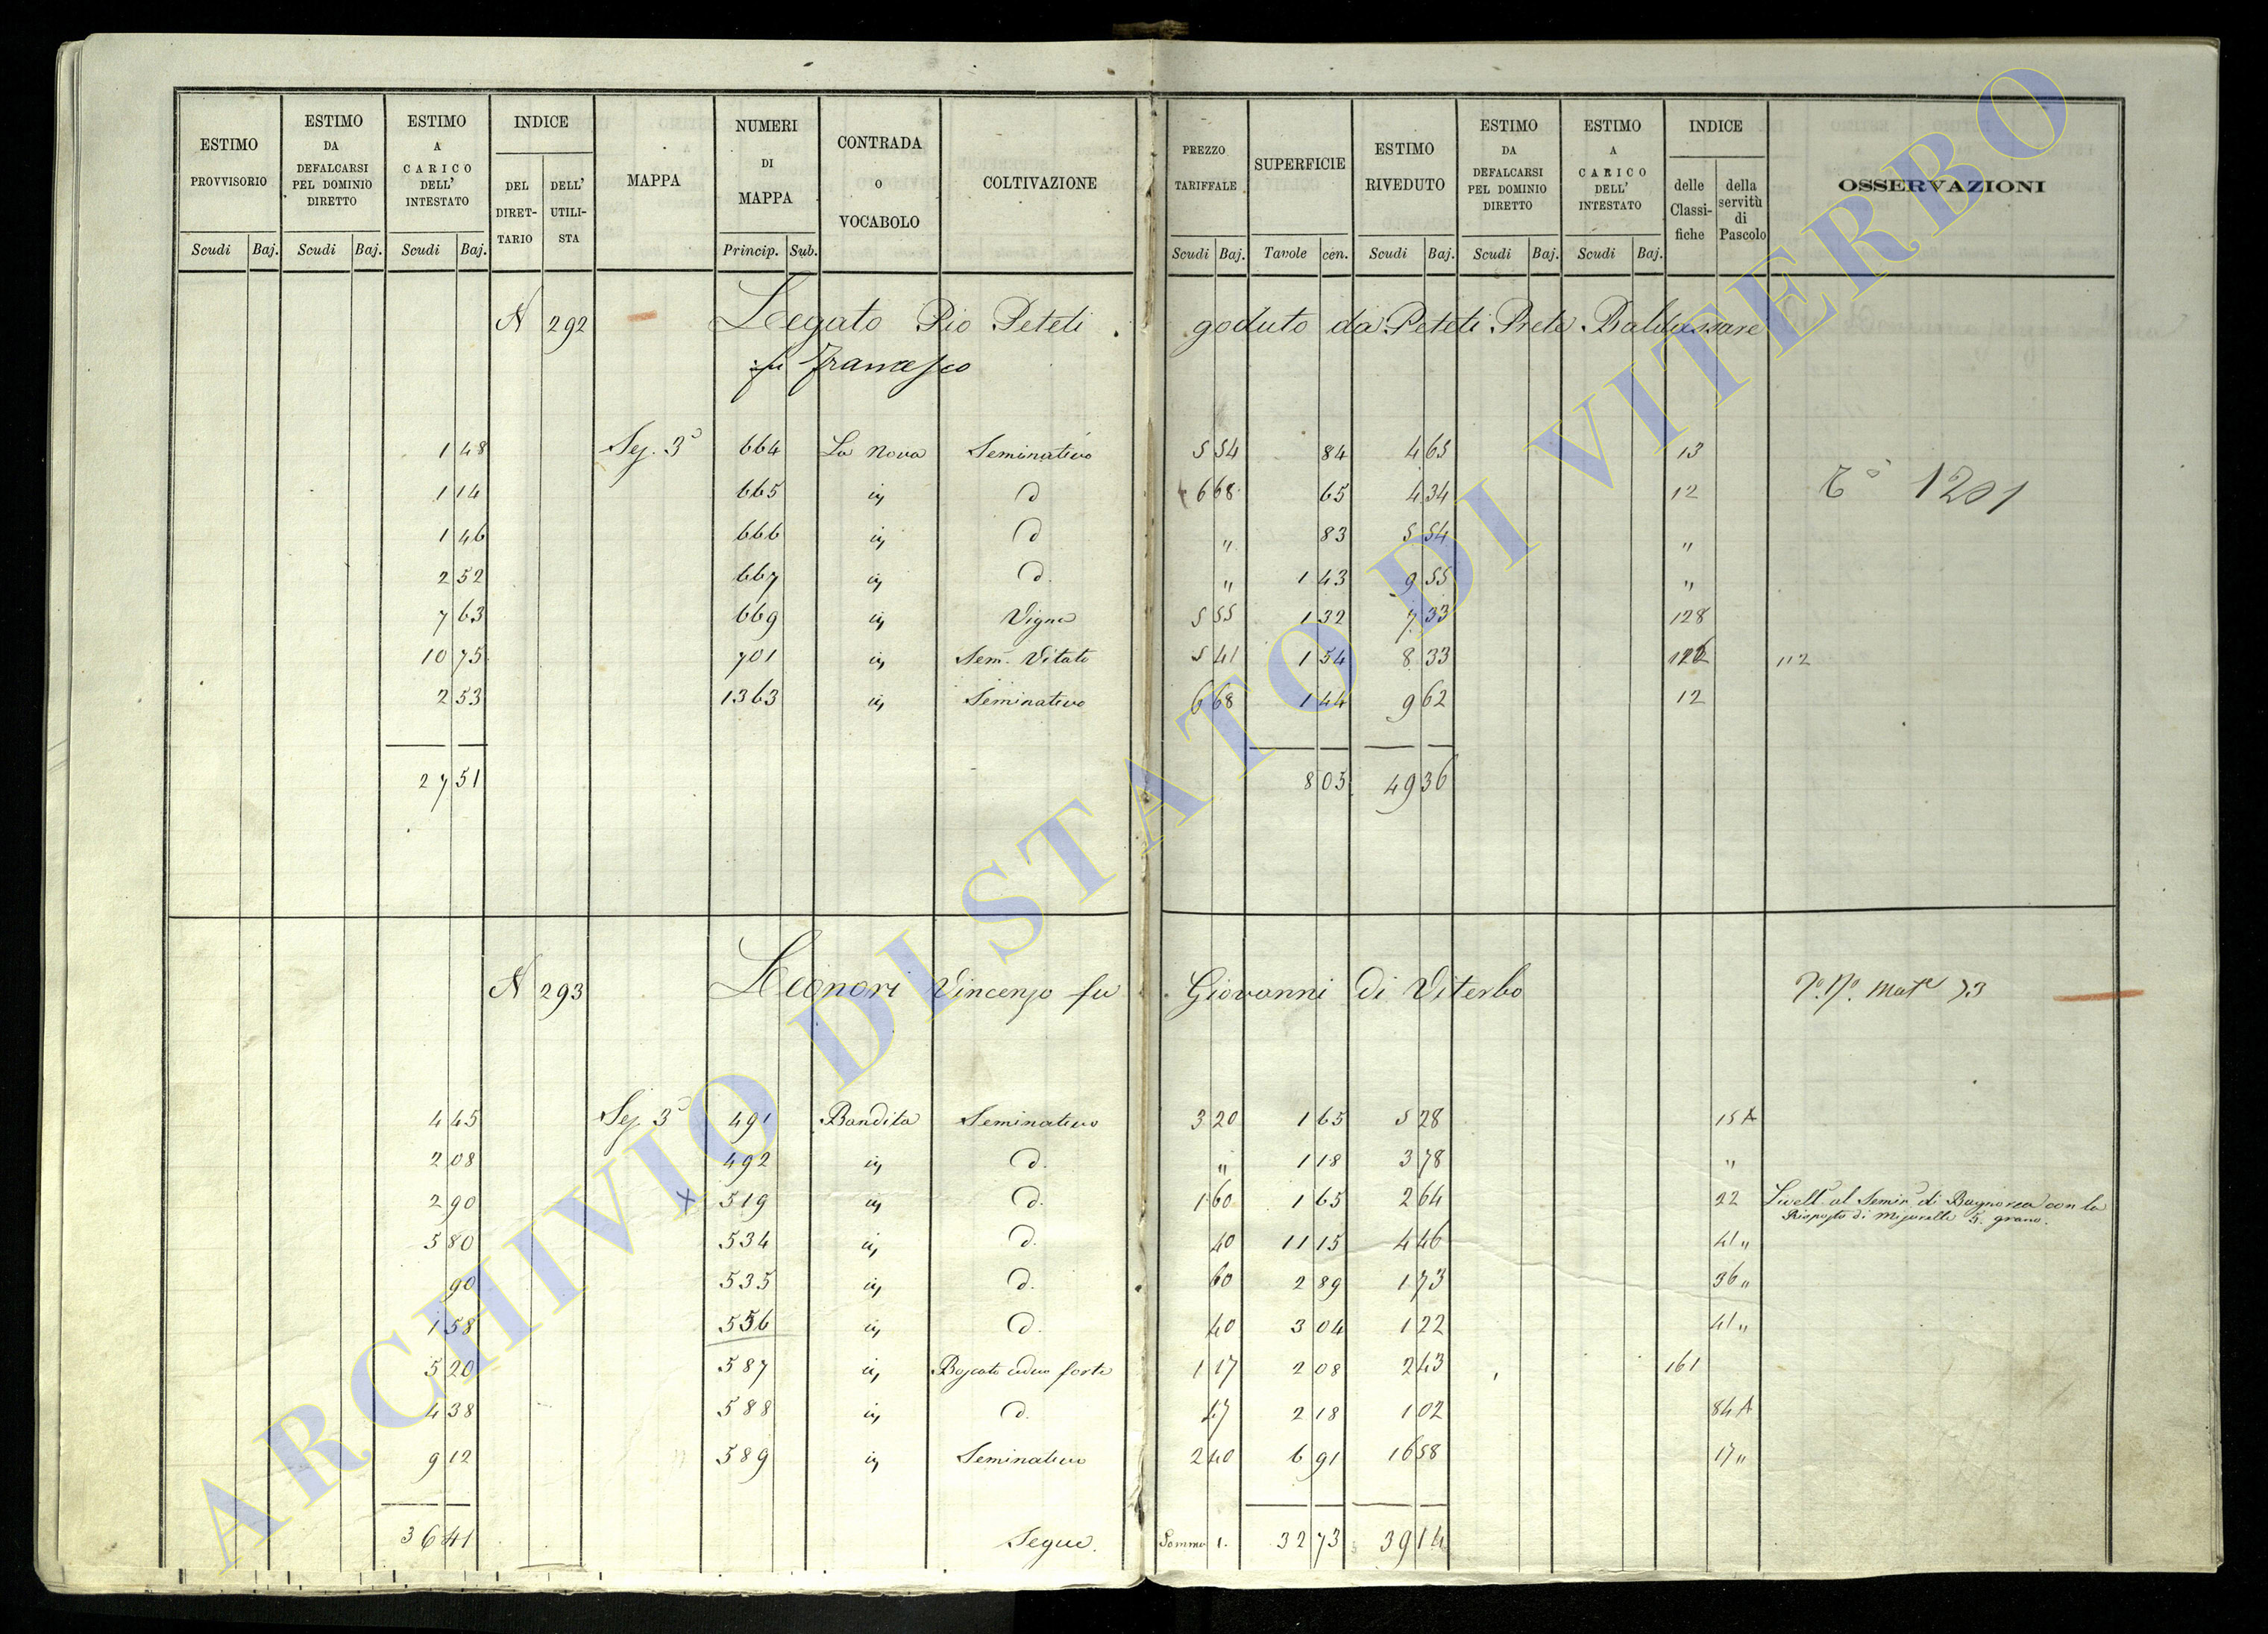 ESTIMO PROVVISORIO Scudi Baj. | ESTIMO DA DEFALCARSI PEL DOMINIO DIRETTO Scudi Baj. | ESTIMO A CARICO DELL' INTESTATO Scudi Baj. | INDICE DEL DIRETTARIO DELL' UTILISTA | MAPPA | NUMERI DI MAPPA Princip. Sub. | CONTRADA O VOCABOLO | COLTIVAZIONE | PREZZO TARIFFALE Scudi Baj. | SUPERFICIE Tavole cen. | ESTIMO RIVEDUTO Scudi Baj. | ESTIMO DA DEFALCARSI PEL DOMINIO DIRETTO Scudi Baj. | ESTIMO A CARICO DELL' INTESTATO Scudi Baj. | INDICE delle Classifiche della servitù di Pascolo | OSSERVAZIONI
N 292 Legato Pio Peteti goduto da Peteti Prete Baldassare
fu Francesco
1 48 Sez. 3ª 664 La Nova Seminativo 5 54 84 4 65 13
1 14 665 id d 6 68 65 4 34 12 1201
1 46 666 id d " 83 5 54 "
2 52 667 id d. " 1 43 9 55 "
7 63 669 id Vigna 5 55 1 32 7 33 128
10 75 701 id Sem. Vitato 5 41 1 54 8 33 112
2 53 1363 id Seminativo 6 68 1 44 9 62 12
27 51 8 05 49 36
N 293 Leonori Vincenzo fu Giovanni di Viterbo 73
4 45 Sez. 3ª 491 Bandita Seminativo 3 20 1 65 5 28 15 A
2 08 492 id d. " 1 18 3 78 "
2 90 x 519 id d. 1 60 1 65 2 64 22 Livell. al Semin. di Bagnorea con la
Risposta di Mizurelle 5. grano.
5 80 534 id d. 40 11 15 4 46 41 "
90 535 id d. 60 2 89 1 73 36 "
1 58 536 id d. 40 3 04 1 22 41 "
5 20 587 id Boscato ceduo forte 1 17 2 08 2 43 161
4 38 588 id d. 47 2 18 1 02 84 A
9 12 589 id Seminativo 2 40 6 91 16 58 17 "
36 41 Segue. Somma 1. 32 73 39 14
ARCHIVIO DI STATO DI VITERBO